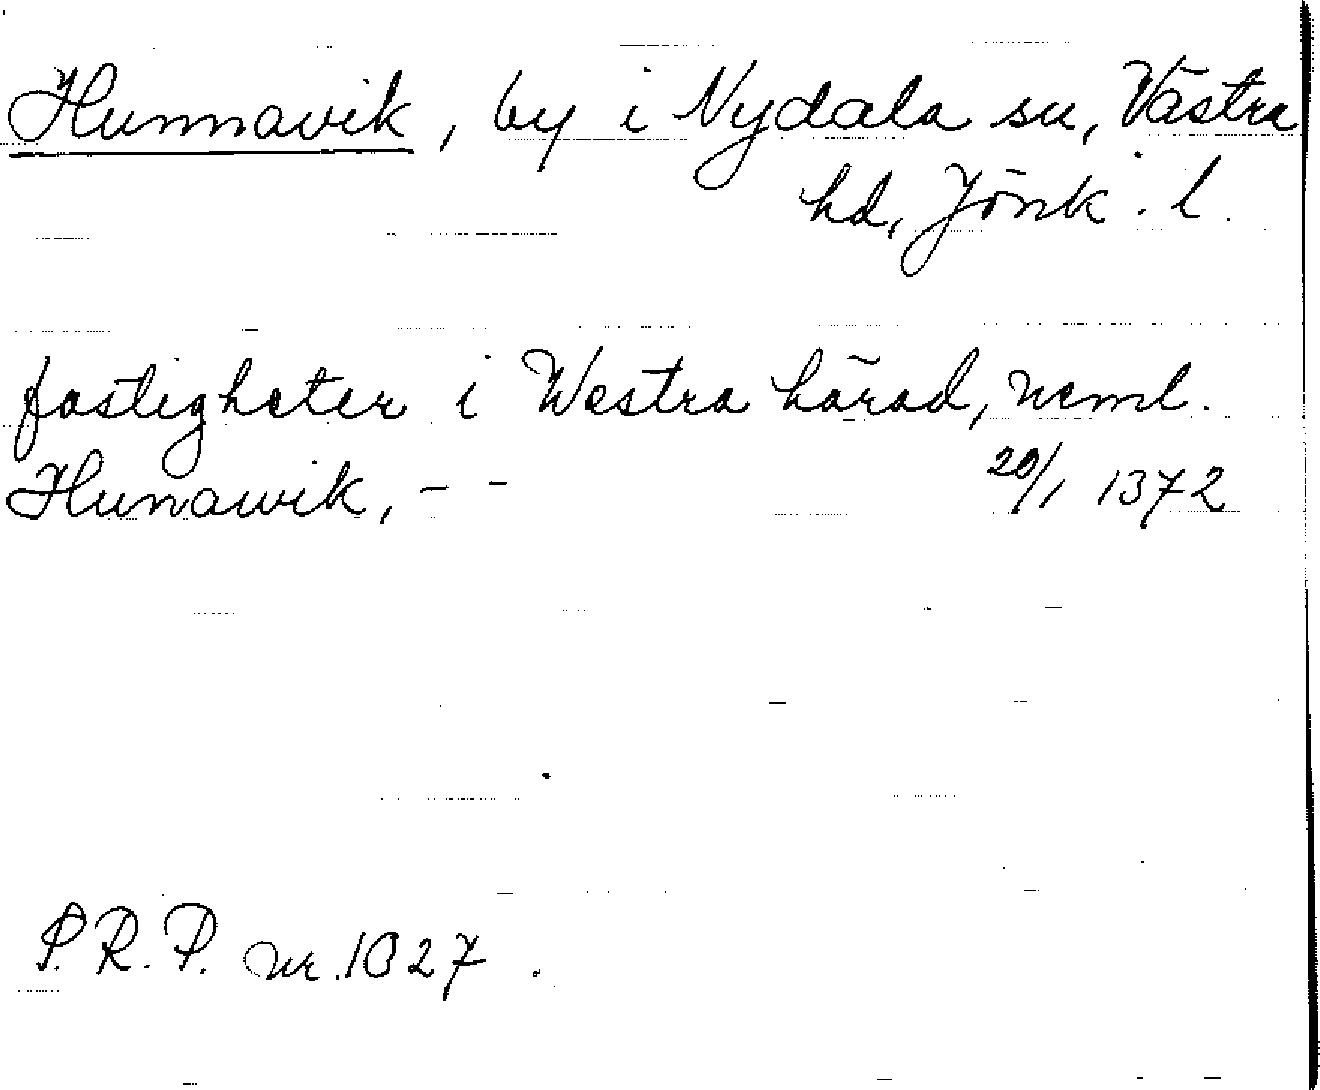 Hunnavik, by i Nydala sn, Västra
hd, Jönk. l.
fastigheter i Westra härad, neml.
Hunawik, - - 20/1 1372
P.R.P. nr. 1027.